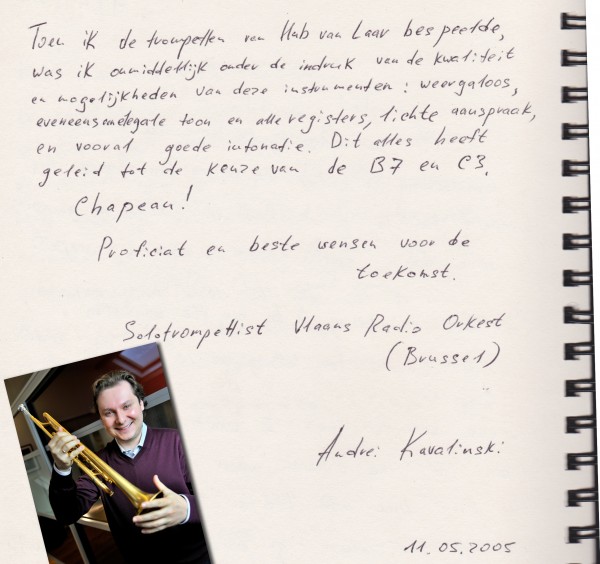 Toen ik de trompetten van Hub van Laar bespeelde,
was ik onmiddellijk onder de indruk van de kwaliteit
en mogelijkheden van deze instrumenten: weergaloos,
toon en alle registers, lichte aanspraak,
en vooral goede intonatie. Dit alles heeft
geleid tot de keuze van de B7 en C3.
Chapeau!
Proficiat en beste wensen voor de
toekomst.
Solotrompettist Vlaams Radio Orkest
(Brussel)
Andrei Kavalinski
11.05.2005